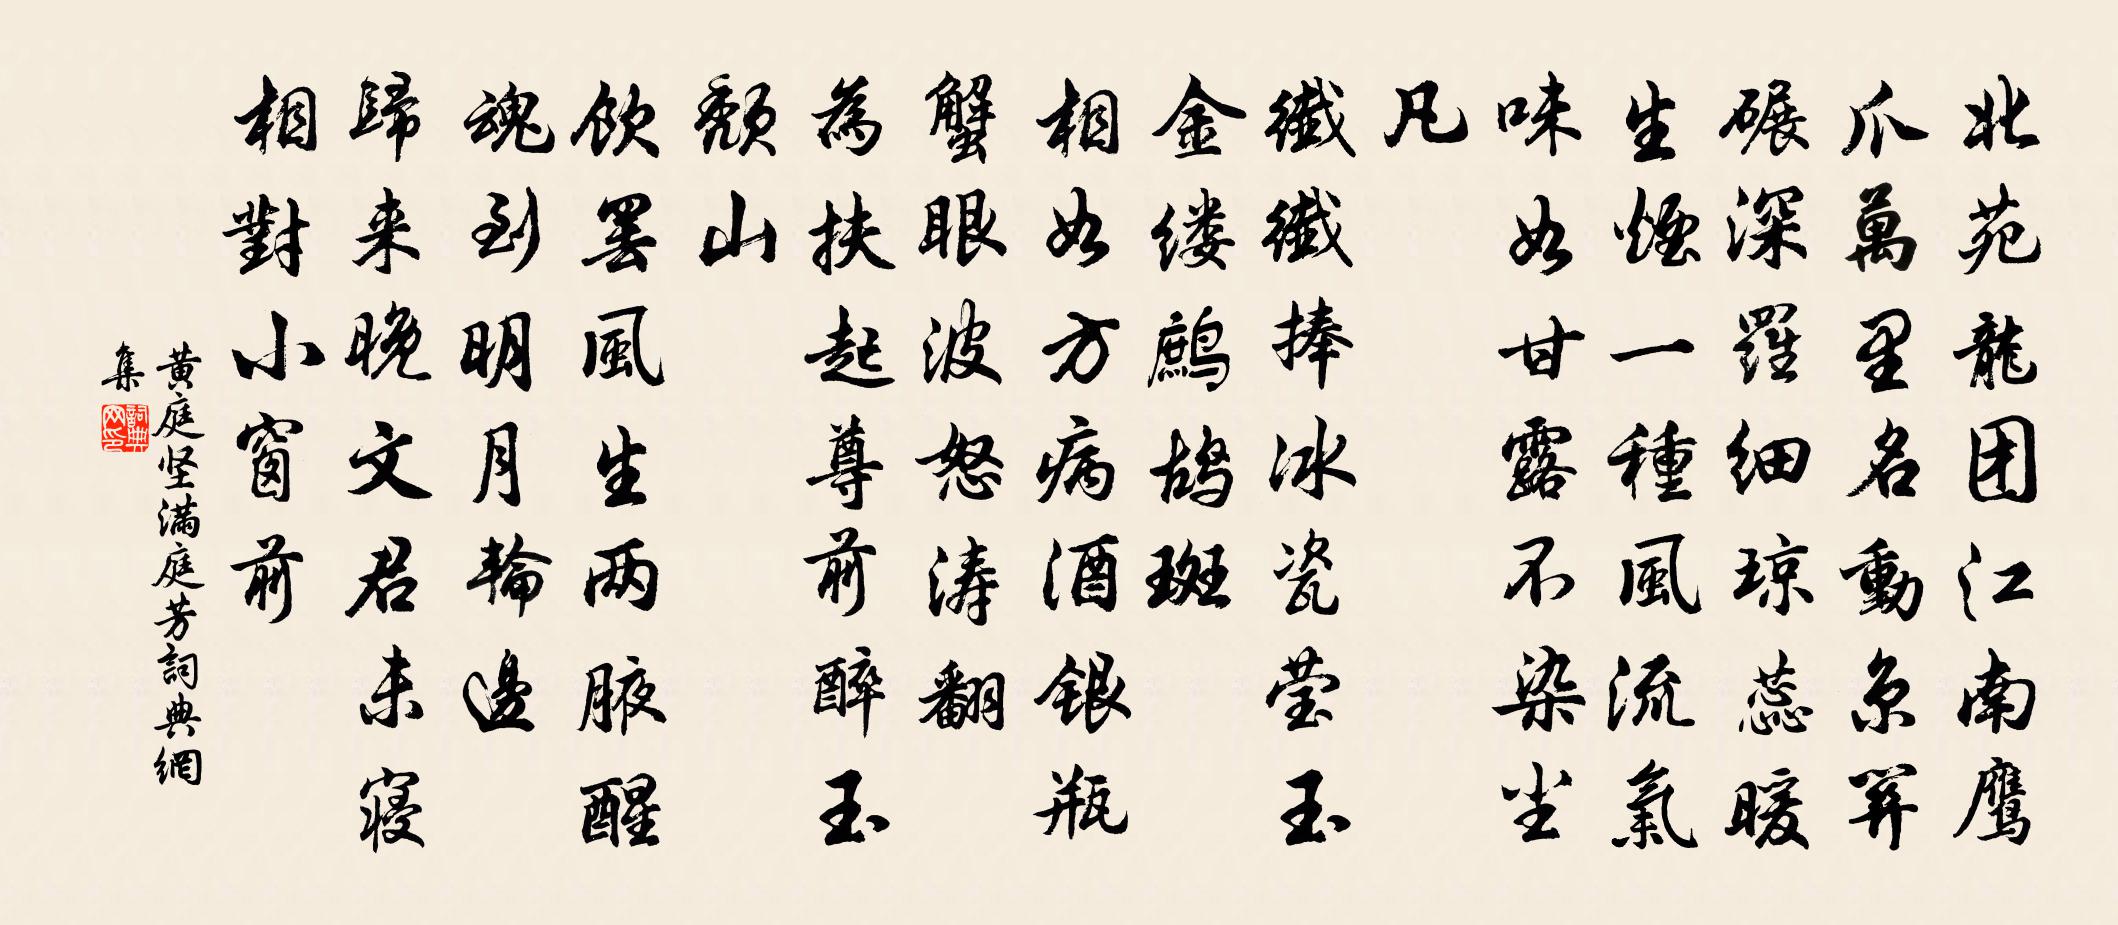 北苑龍团江南鹰
爪萬里名動京関
碾深羅细琼蕊暖
生煙一種風流氣
味如甘露不染尘
凡
纖纖捧冰瓷莹玉
金缕鹧鸪斑
相如方病酒银瓶
蟹眼波怒涛翻
為扶起尊前醉玉
颓山
飲罢風生两腋醒
魂到明月輪邊
歸来晚文君未寝
相對小窗前
黄庭坚满庭芳詞典網
集
詞典网印